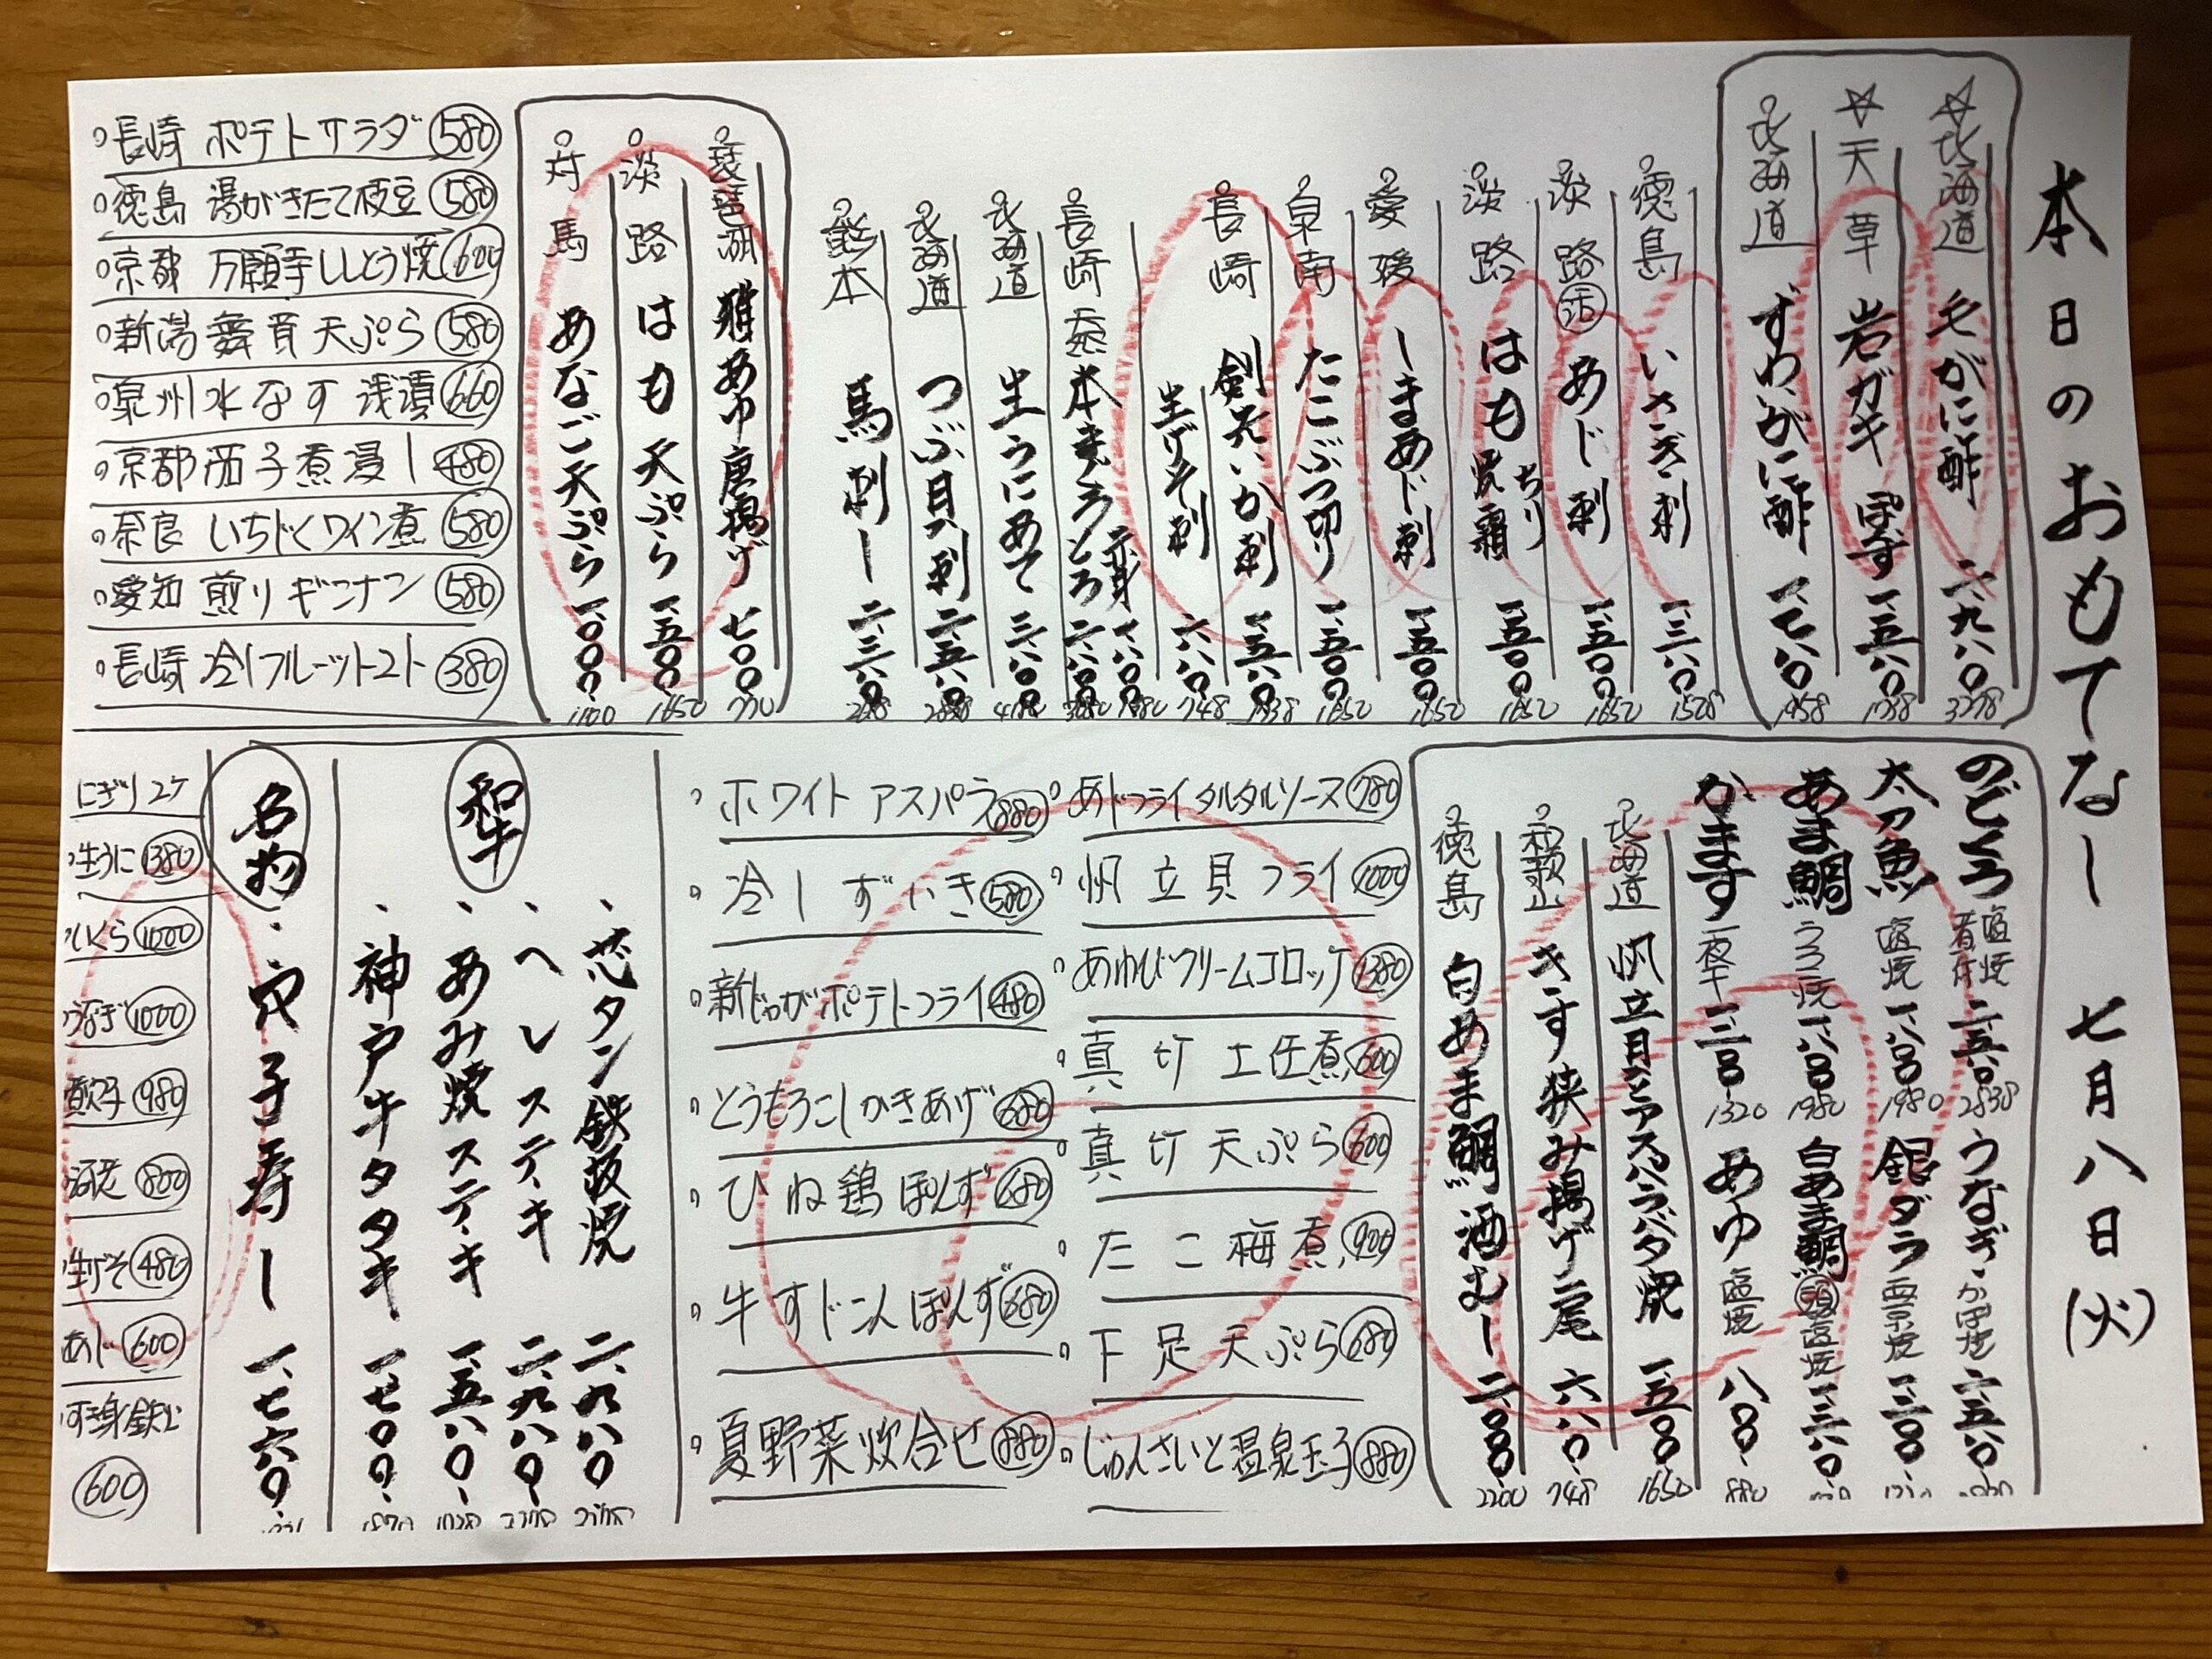 本日のおもてなし 七月八日(火)
☆北海道 毛がに酢 二、九八〇 3278
☆天草 岩ガキ ぽず 一、五八〇 1738
北海道 ずわいがに酢 一、七八〇 1958
徳島 いさぎ刺 一、三八〇 1518
淡路 活 あじ刺 一、五〇〇 1650
淡路 はも ちり 焼霜 一、五〇〇 1650
愛媛 しまあじ刺 一、五〇〇 1650
泉南 たこぶつ切り 一、五〇〇 1650
長崎 剣先いか刺 一、五八〇 1738
生げそ刺 六八〇 748
長崎 本まぐろ 赤身 一、八〇〇 1980
とろ 二、八〇〇 3080
北海道 生うにあて 三、八〇〇 4180
北海道 つぶ貝刺 二、五八〇 2838
熊本 馬刺し 二、三八〇
琵琶湖 稚あゆ唐揚げ 七〇〇 770
淡路 はも天ぷら 一、五〇〇 1650
対馬 あなご天ぷら 一、〇〇〇 1100
長崎 ポテトサラダ 580
徳島 湯がきたて枝豆 580
京都 万願寺ししとう焼 600
新潟 舞茸天ぷら 580
泉州水なす 浅漬 660
京都 茄子煮浸し 480
奈良 いちじくワイン煮 580
愛知 煎りギンナン 580
長崎 冷しフルーツトマト 380
のどぐろ 塩焼 煮付 二、五八〇 2838
太刀魚 塩焼 一、八〇〇 1980
あま鯛 うろこ焼 一、八〇〇 1980
かます 一夜干 一、二〇〇 1320
うなぎ かば焼 二、五八〇
銀ダラ 西京焼 一、二〇〇
白あま鯛 頭 塩焼 一、二八〇
あゆ 塩焼 八〇〇 880
北海道 帆立貝とアスパラバタ焼 一、五〇〇 1650
和歌山 きす挟み揚げ二尾 六八〇 748
徳島 白あま鯛酒むし 二、〇〇〇 2200
あじフライタルタルソース 780
帆立貝フライ 1000
あわびクリームコロッケ 1380
真竹土佐煮 600
真竹天ぷら 600
たこ梅煮 900
下足天ぷら 680
じゅんさいと温泉玉子 880
ホワイトアスパラ 880
冷しずいき 580
新じゃがポテトフライ 480
とうもろこしかきあげ 680
ひね鶏ぽんず 680
牛すじこんぽんず 680
夏野菜炊合せ 880
和牛
芯タン鉄板焼 二、九八〇
ヘレステーキ 二、九八〇
あみ焼ステーキ 一、五八〇
神戸牛タタキ 一、七〇〇 1870
名物
穴子寿し 一、七六〇
にぎり2ケ
生うに 1380
いくら 1000
うなぎ 1000
煮穴子 980
海老 800
生げそ 480
あじ 600
すき身鉄火
600